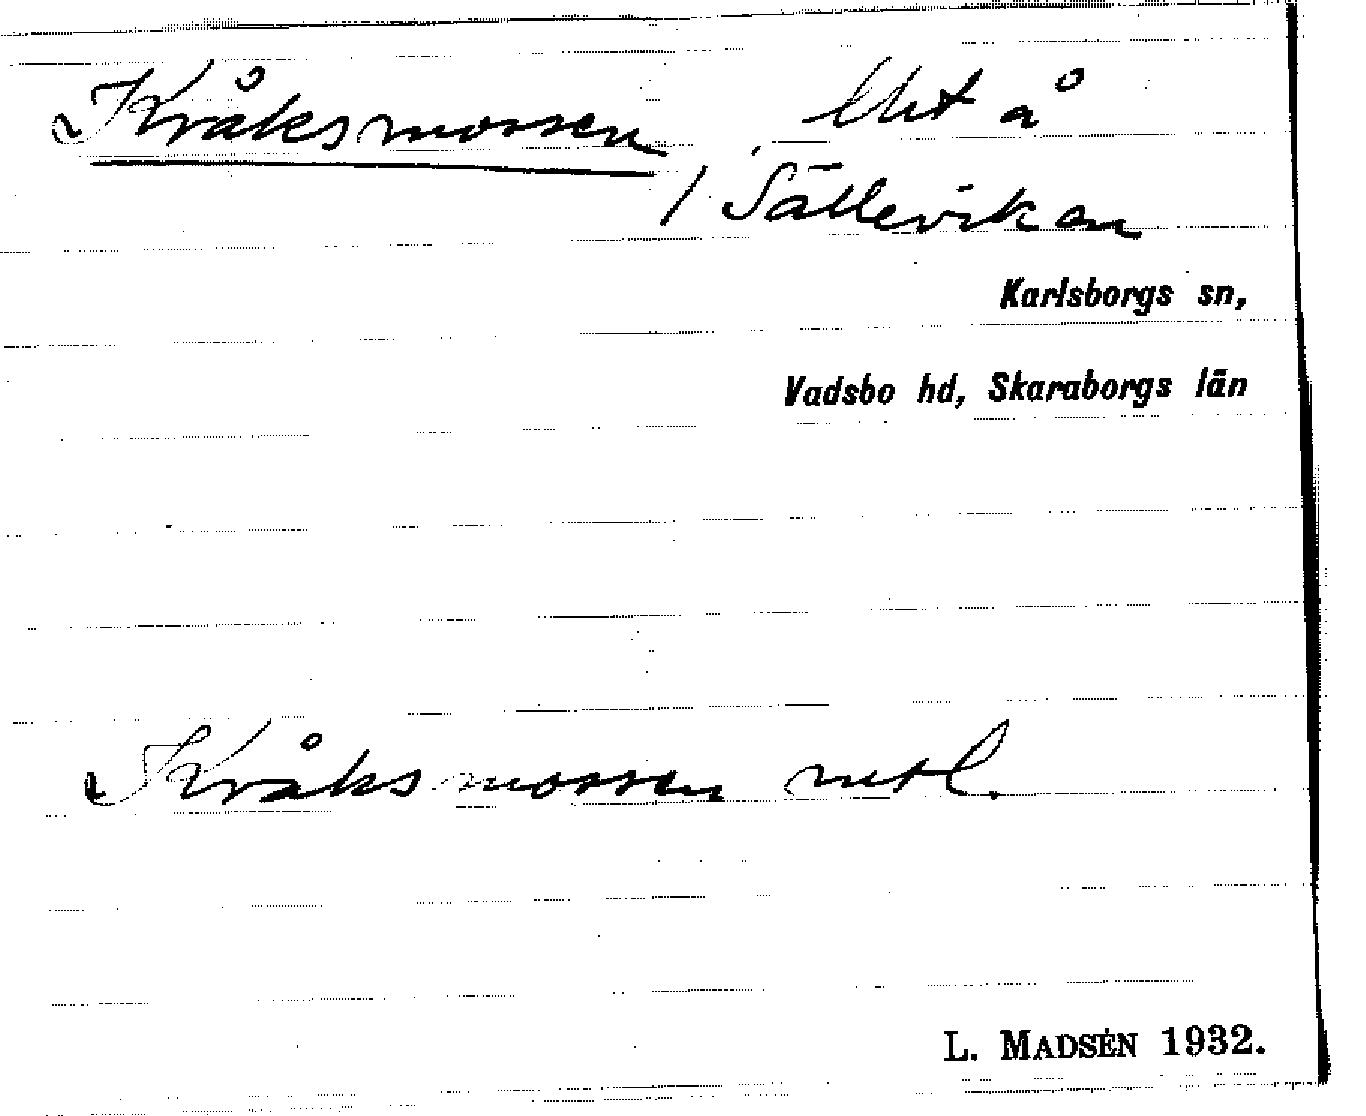 Kråksmossen Utt å
/ Sätteviken
Karlsborgs sn,
Vadsbo hd, Skaraborgs län
Kråksmossen
L. MADSÉN 1932.